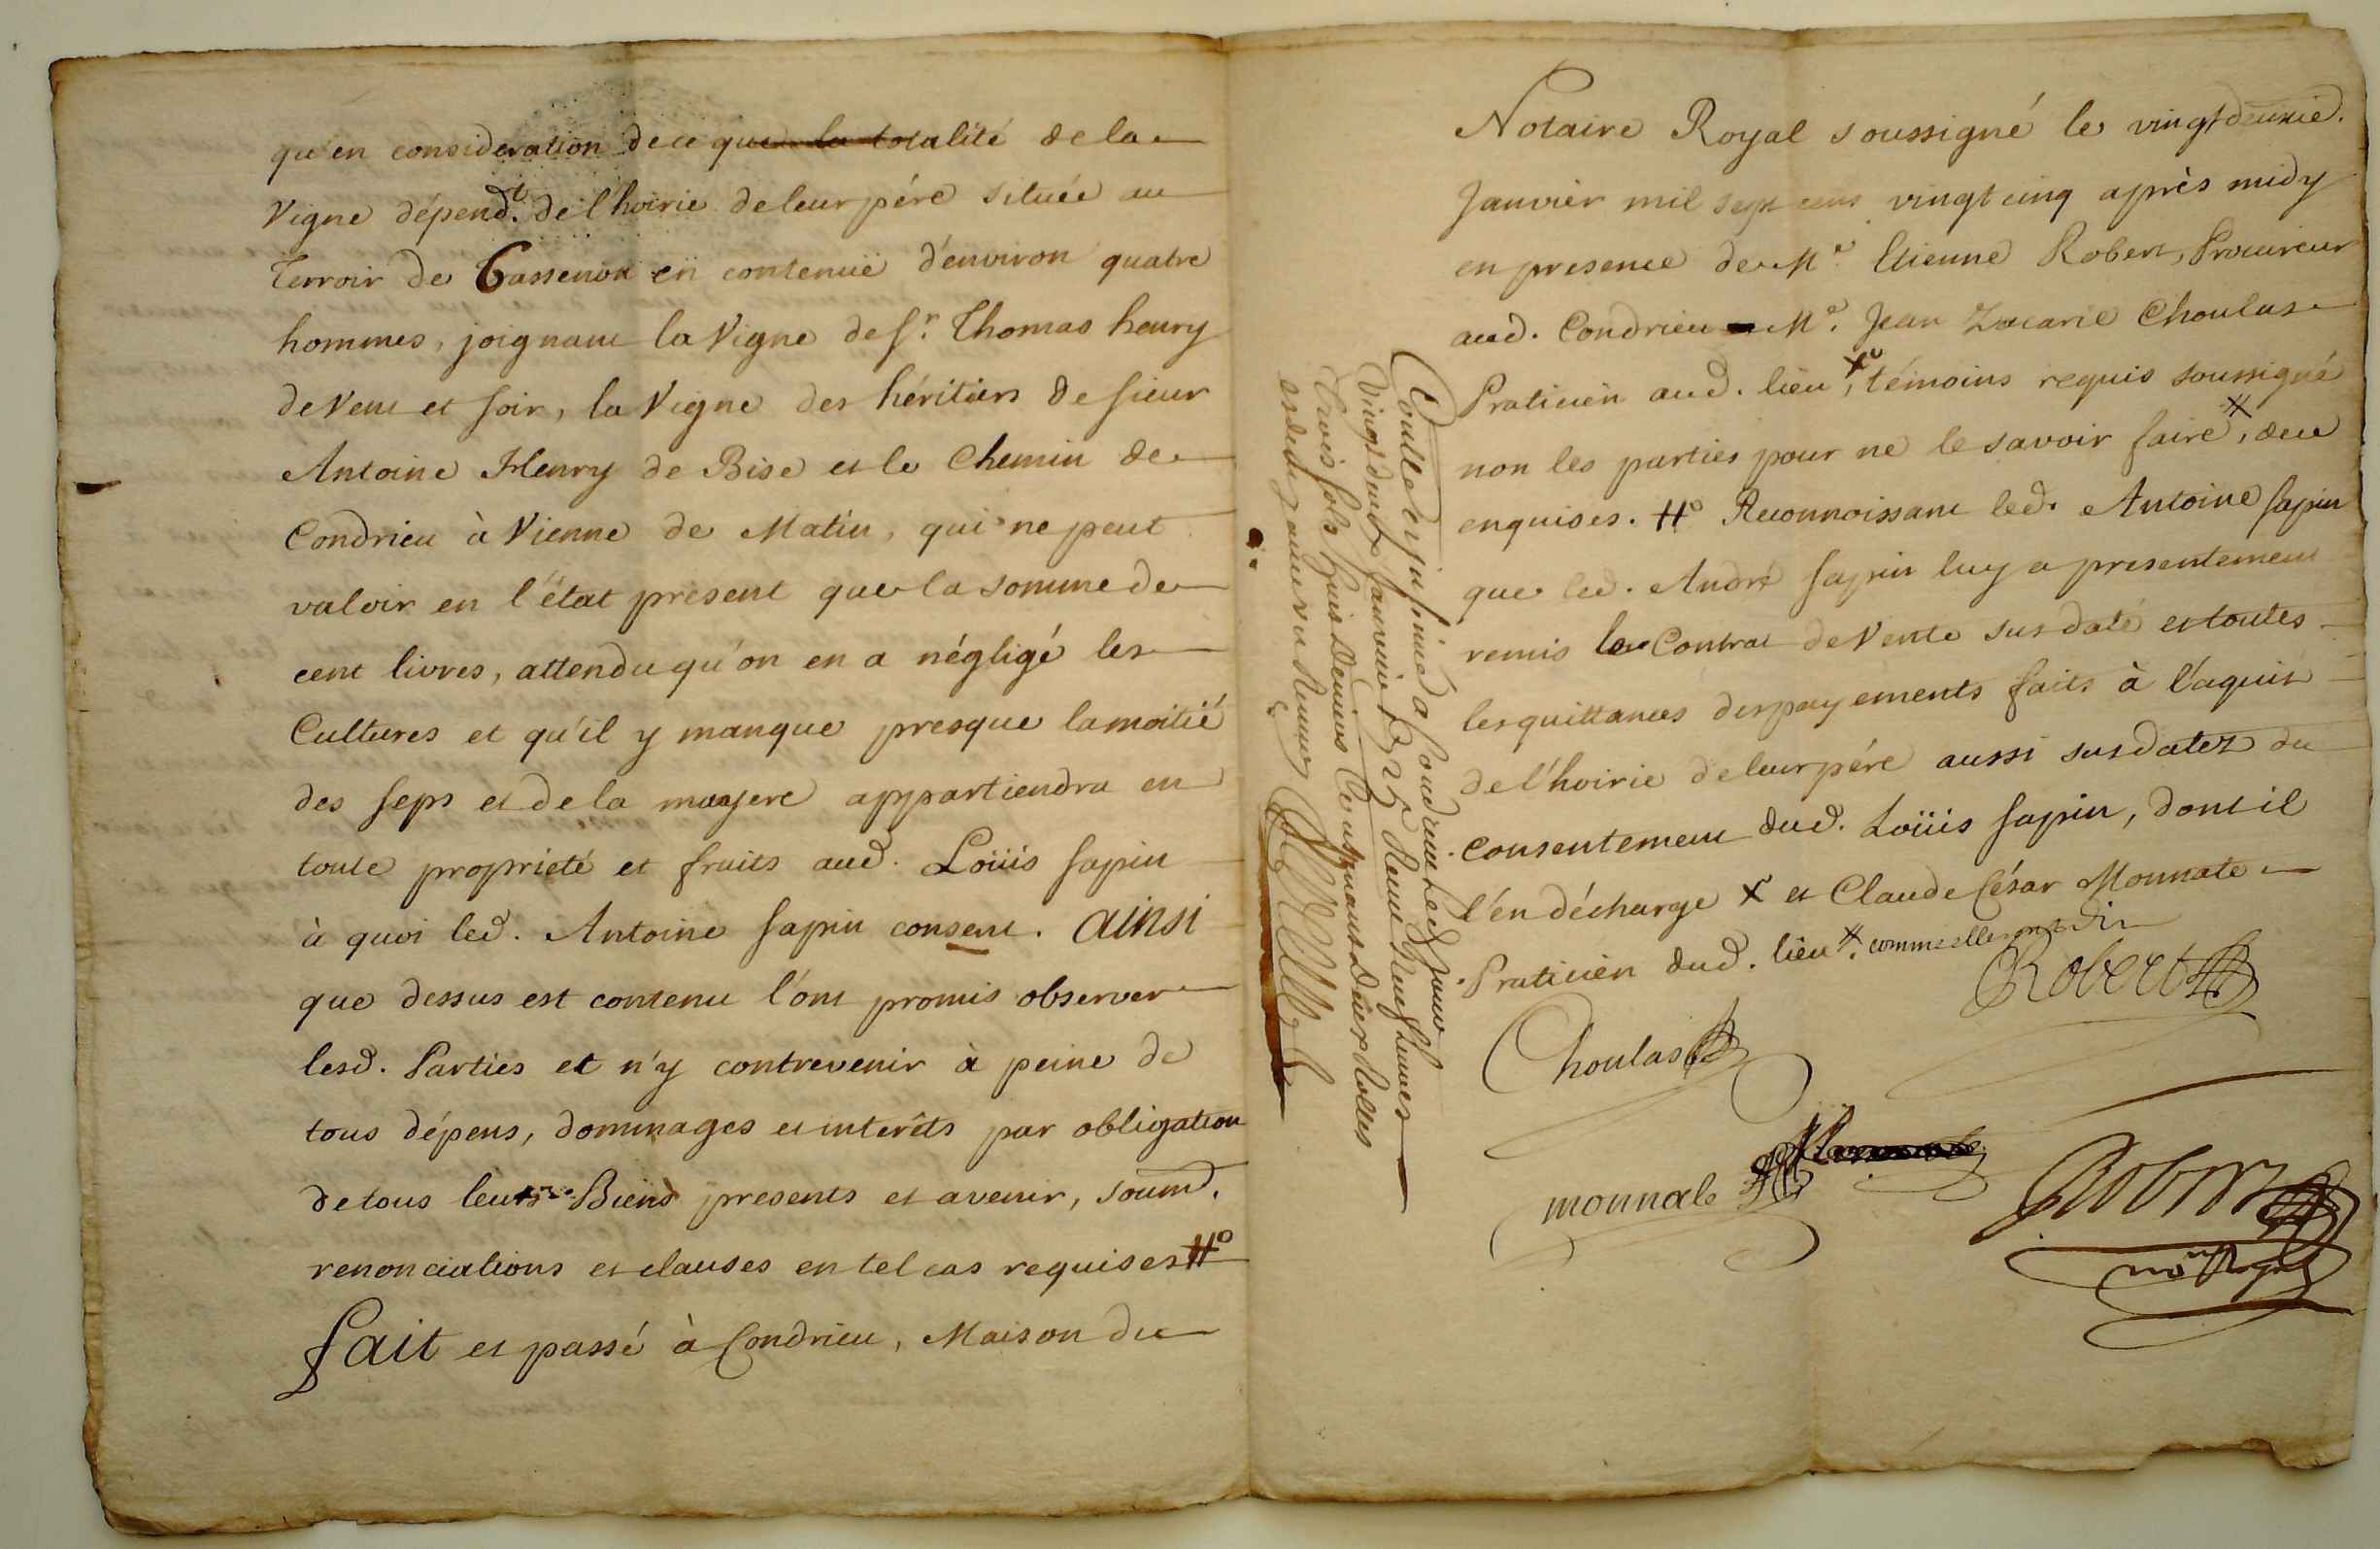 qu'en consideration de ce que la totalité de la
Vigne dépend.t de l'hoirie de leur pére située au
Terroir de Tassenon en contenüe d'environ quatre
hommes, joignant la Vigne de Sr. Thomas henry
de Vent et soir, la Vigne des héritiers de sieur
Antoine Henry de Bise et le Chemin de
Condrieu à Vienne de Matin, qui ne peut
valoir en l'état present que la somme de
cent livres, attendu qu'on en a négligé les
Cultures et qu'il y manque presque la moitié
des seps et de la mayere appartiendra en
toute proprieté et fruits aud. Loüis Sapin
à quoi led. Antoine Sapin consent. Ainsi
que dessus est contenu l'ont promis observer
lesd. Parties et n'y contrevenir à peine de
tous dépens, dommages et interêts par obligation
de tous leurs Biens presents et avenir, soumd.
renonciations et clauses en tel cas requises #o
fait et passé à Condrieu, Maison du
Notaire Royal soussigné le vingt deuxie.
Janvier mil sept cens vingt cinq après midy
en presence de Me. Etienne Robert, Procureur
aud. Condrieu Me. Jean Zacarie Choulas
Praticien aud. lieu, témoins requis soussigné
non les parties pour ne le savoir faire, de ce
enquises. #o Reconnoissant led. Antoine Sapin
que led. André Sapin luy a presentement
remis le Contrat de Vente susdaté et toutes
les quittances des payements faits à l'aquit
de l'hoirie de leur pére aussi susdatez du
consentement dud. Loüis Sapin, dont il
l'en décharge x et Claude César Monnate
Praticien dud. lieu #. comme elles ont dit
Robert
Choulas
monnate
Robert
no. Royal
Controllé et insinué a Condrieu led. jour
Vingt deuxe Janvier 1725 Reçu neuf livres
trois sols huit deniers